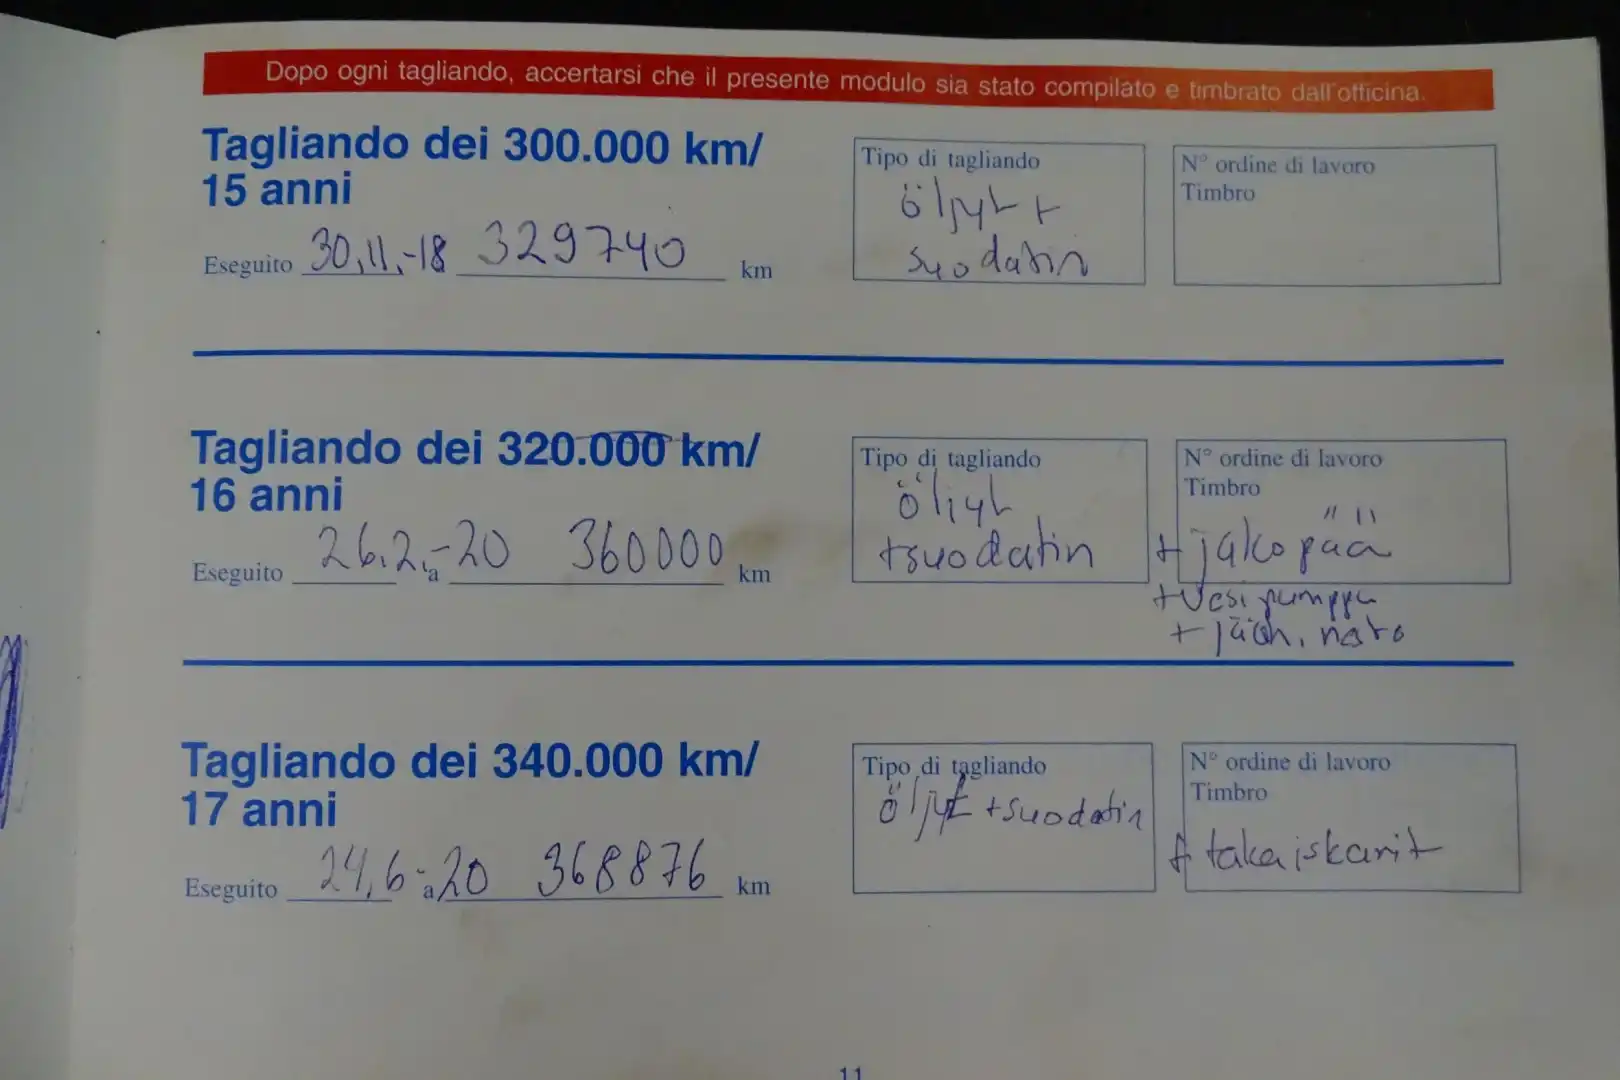 Dopo ogni tagliando, accertarsi che il presente modulo sia stato compilato e timbrato dall'officina.
Tagliando dei 300.000 km/
15 anni
Eseguito 30.11.-18 329740 km
Tipo di tagliando
öljyt +
suodatin
N° ordine di lavoro
Timbro
Tagliando dei 320.000 km/
16 anni
Eseguito 26.2.-20 a 360000 km
Tipo di tagliando
öljyt
+suodatin
N° ordine di lavoro
Timbro
+ jakopää
+ vesipumppu
+ jääh.
Tagliando dei 340.000 km/
17 anni
Eseguito 24.6-20 a 368876 km
Tipo di tagliando
öljyt +suodatin
N° ordine di lavoro
Timbro
+ takaiskarit
11